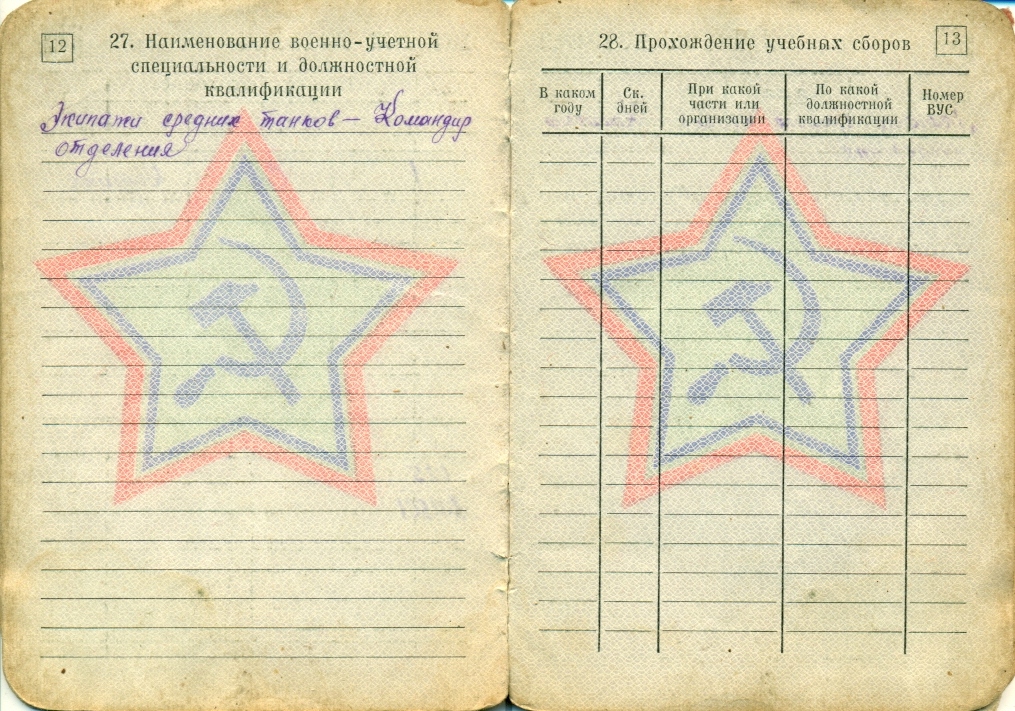 12
27. Наименование военно-учетной
специальности и должностной
квалификации
Экипажи средних танков — Командир
отделения
13
28. Прохождение учебных сборов
В каком
году
Ск.
дней
При какой
части или
организации
По какой
должностной
квалификации
Номер
ВУС